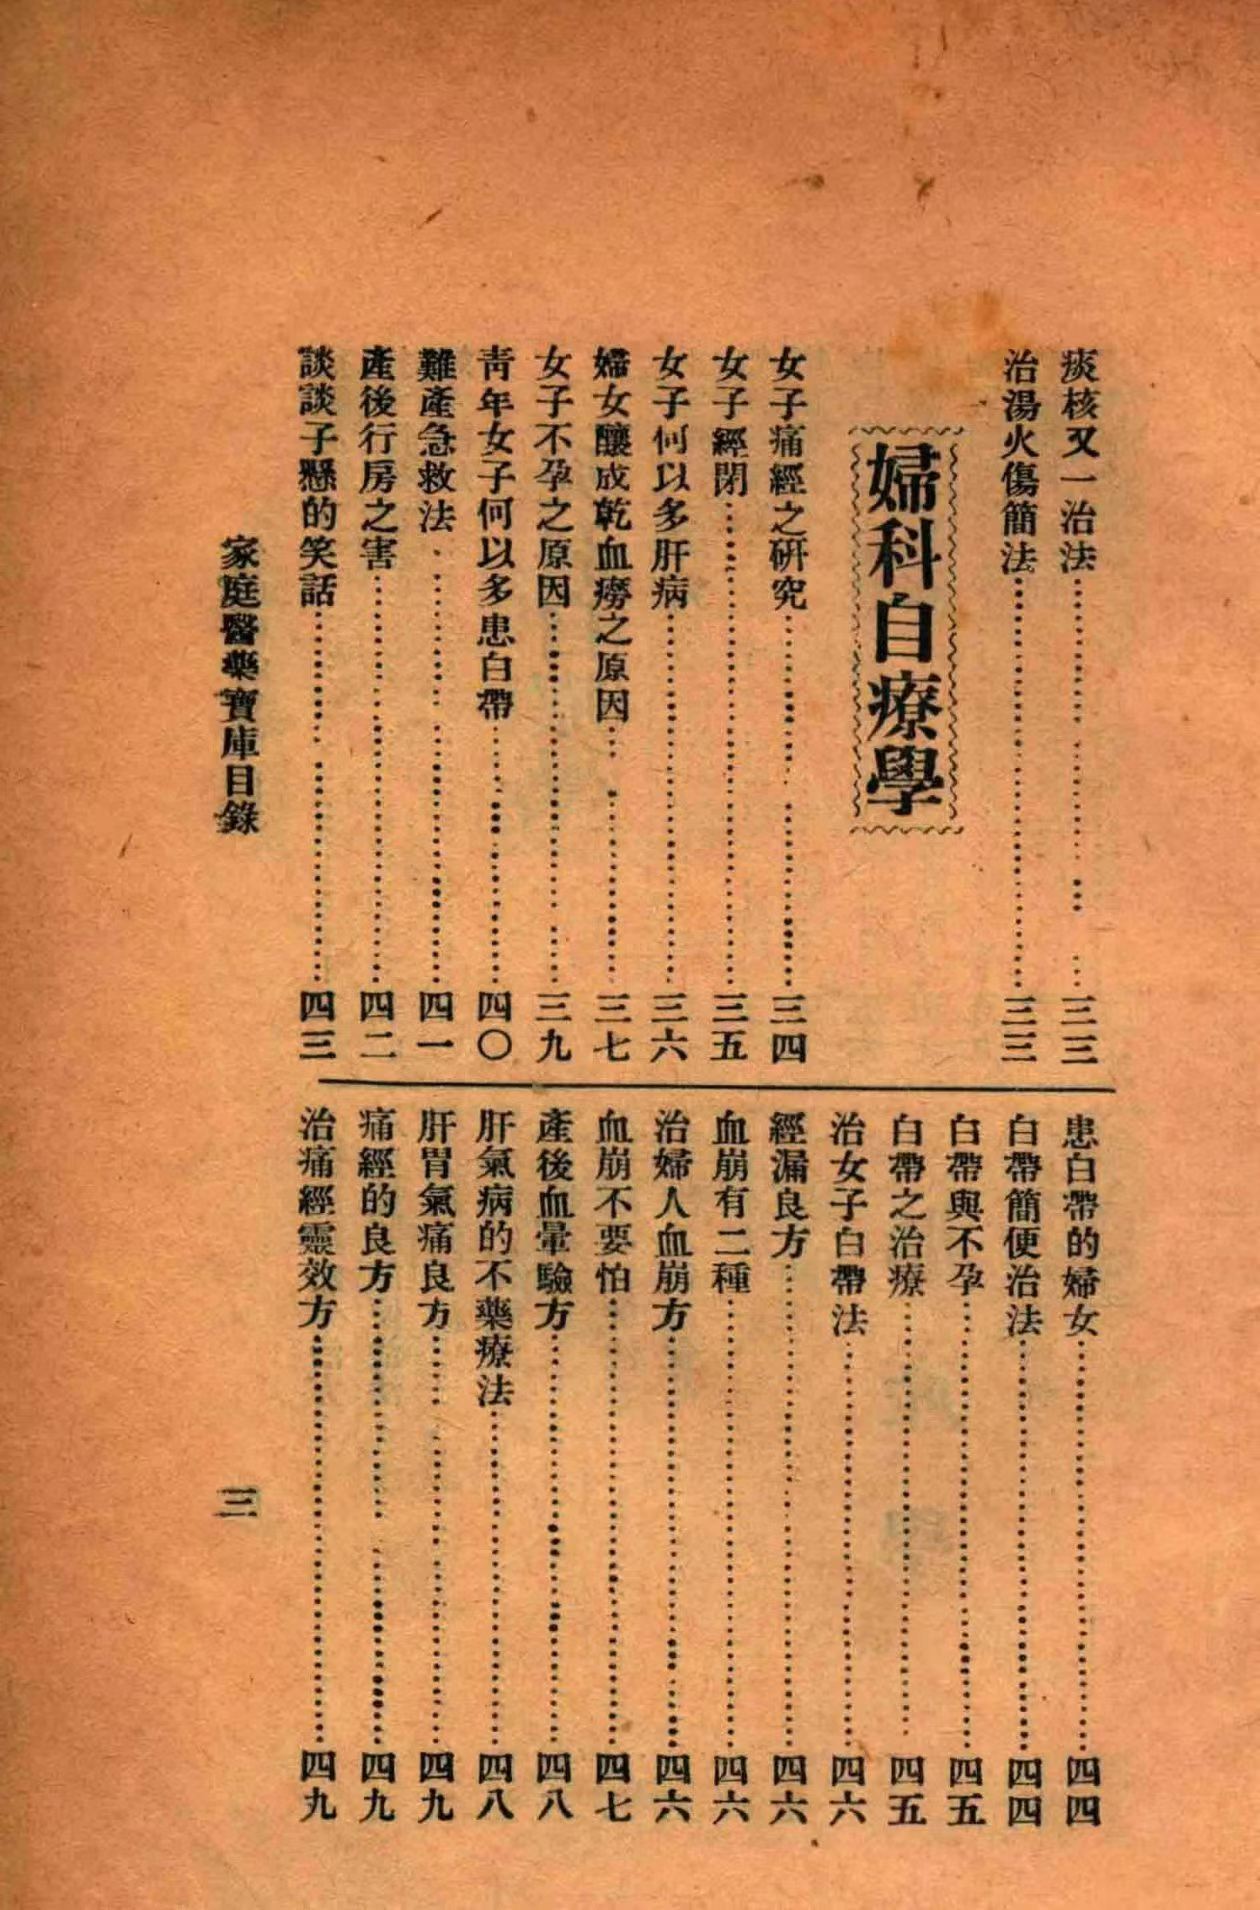 痰核又一治法……三三
治湯火傷簡法……三三
婦科自療學
女子痛經之研究……三四
女子經閉……三五
女子何以多肝病……三六
婦女釀成乾血癆之原因……三七
女子不孕之原因……三九
靑年女子何以多患白帶……四〇
難產急救法……四一
產後行房之害……四二
談談子懸的笑話……四三
患白帶的婦女……四四
白帶簡便治法……四四
白帶與不孕……四五
白帶之治療……四五
治女子白帶法……四六
經漏良方……四六
血崩有二種……四六
治婦人血崩方……四六
血崩不要怕……四七
產後血暈驗方……四八
肝氣病的不藥療法……四八
肝胃氣痛良方……四九
痛經的良方……四九
治痛經靈效方……四九
家庭醫藥寶庫目錄
三